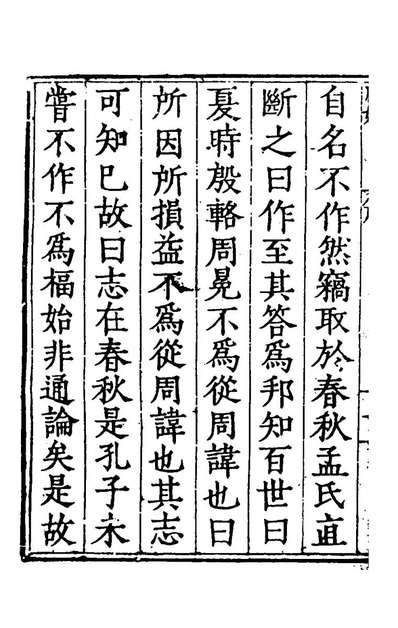 自名不作然竊取於春秋孟氏直
斷之曰作至其答爲邦知百世曰
夏時殷輅周冕不爲從周諱也曰
所因所損益不爲從周諱也其志
可知已故曰志在春秋是孔子未
嘗不作不爲福始非通論矣是故